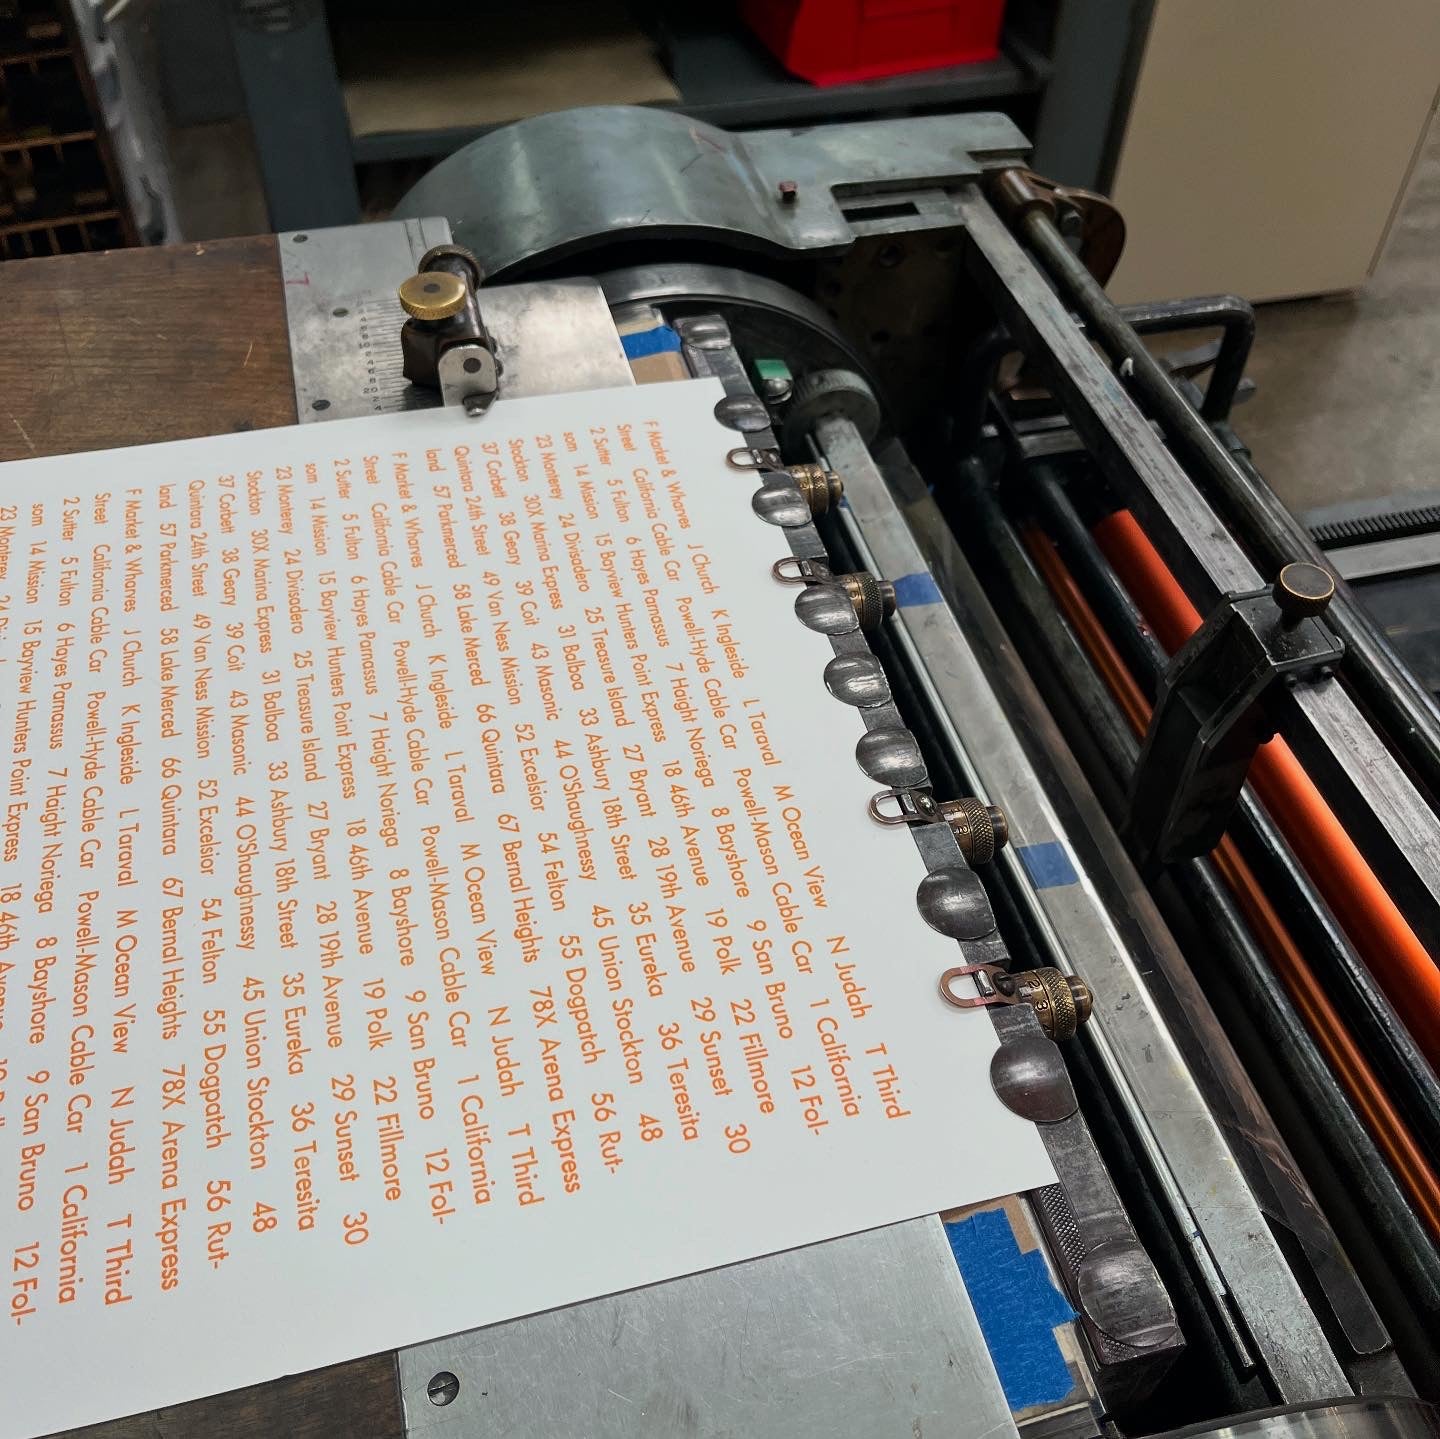 F Market & Wharves J Church K Ingleside L Taraval M Ocean View N Judah T Third
Street California Cable Car Powell-Hyde Cable Car Powell-Mason Cable Car 1 California
2 Sutter 5 Fulton 6 Hayes Parnassus 7 Haight Noriega 8 Bayshore 9 San Bruno 12 Fol-
som 14 Mission 15 Bayview Hunters Point Express 18 46th Avenue 19 Polk 22 Fillmore
23 Monterey 24 Divisadero 25 Treasure Island 27 Bryant 28 19th Avenue 29 Sunset 30
Stockton 30X Marina Express 31 Balboa 33 Ashbury 18th Street 35 Eureka 36 Teresita
37 Corbett 38 Geary 39 Coit 43 Masonic 44 O'Shaughnessy 45 Union Stockton 48
Quintara 24th Street 49 Van Ness Mission 52 Excelsior 54 Felton 55 Dogpatch 56 Rut-
land 57 Parkmerced 58 Lake Merced 66 Quintara 67 Bernal Heights 78X Arena Express
F Market & Wharves J Church K Ingleside L Taraval M Ocean View N Judah T Third
Street California Cable Car Powell-Hyde Cable Car Powell-Mason Cable Car 1 California
2 Sutter 5 Fulton 6 Hayes Parnassus 7 Haight Noriega 8 Bayshore 9 San Bruno 12 Fol-
som 14 Mission 15 Bayview Hunters Point Express 18 46th Avenue 19 Polk 22 Fillmore
23 Monterey 24 Divisadero 25 Treasure Island 27 Bryant 28 19th Avenue 29 Sunset 30
Stockton 30X Marina Express 31 Balboa 33 Ashbury 18th Street 35 Eureka 36 Teresita
37 Corbett 38 Geary 39 Coit 43 Masonic 44 O'Shaughnessy 45 Union Stockton 48
Quintara 24th Street 49 Van Ness Mission 52 Excelsior 54 Felton 55 Dogpatch 56 Rut-
land 57 Parkmerced 58 Lake Merced 66 Quintara 67 Bernal Heights 78X Arena Express
F Market & Wharves J Church K Ingleside L Taraval M Ocean View N Judah T Third
Street California Cable Car Powell-Hyde Cable Car Powell-Mason Cable Car 1 California
2 Sutter 5 Fulton 6 Hayes Parnassus 7 Haight Noriega 8 Bayshore 9 San Bruno 12 Fol-
som 14 Mission 15 Bayview Hunters Point Express 18 46th Avenue
23 Monterey 24